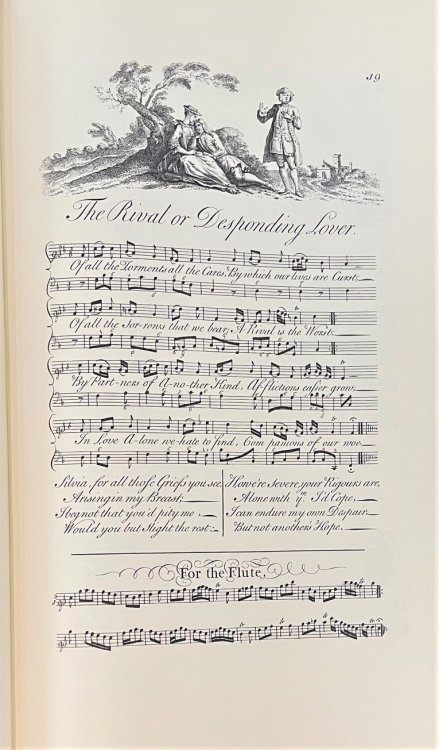 19
The Rival or Desponding Lover.
Of all the Torments all the Cares, By which our lives are Curst;
Of all the Sor-rows that we bear; A Rival is the Worst.
By Part-ners of A-no-ther Kind, Afflictions easier grow;
In Love A-lone we hate to find, Com panions of our woe
Silvia, for all those Griefs you see,
Arising in my Breast;
I beg not that you'd pity me
Would you but slight the rest:
Howe're Severe, your Rigours are,
Alone with ym. I'd Cope,
I can endure my own Despair
But not another's Hope.
For the Flute.